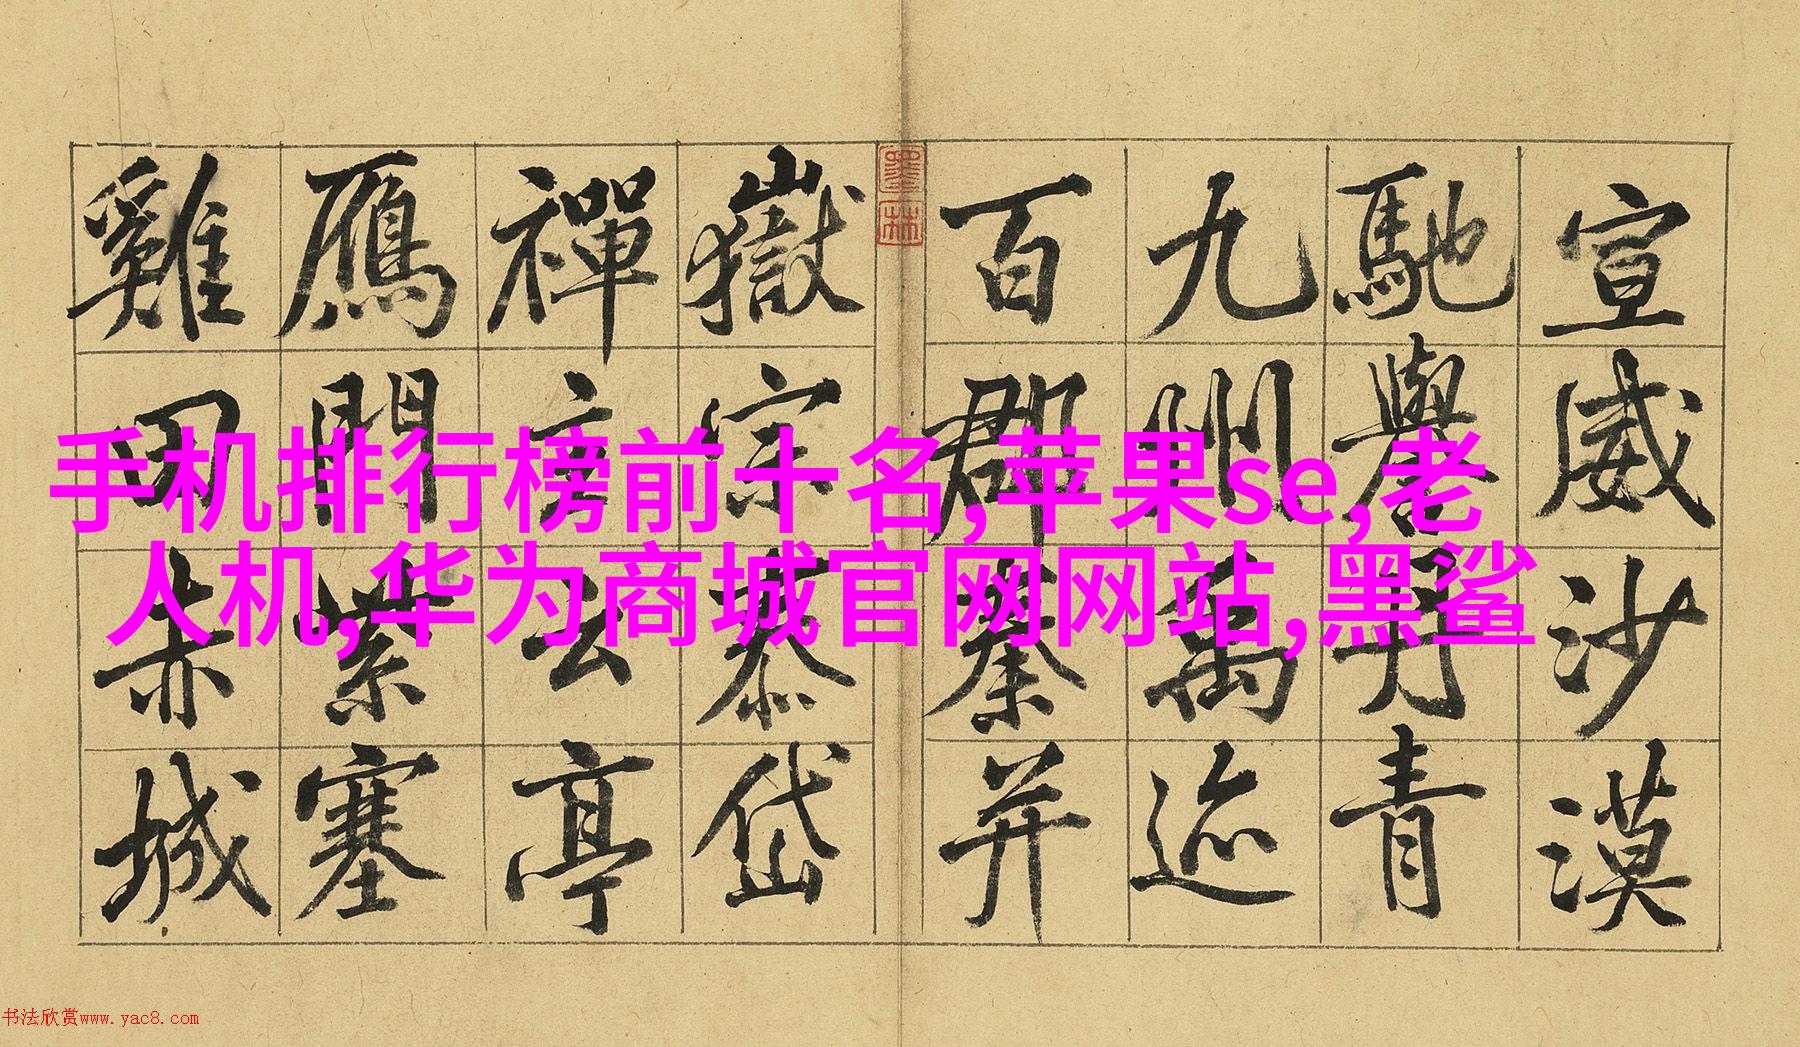 宣威沙漠
馳譽丹青
九州禹迹
百郡秦并
墨林
嶽宗泰岱
禪主云亭
鴈門紫塞
雞田赤城
手机排行榜前十名,苹果se,老
人机,华为商城官网网站,黑鲨
书法欣赏www.yac8.com